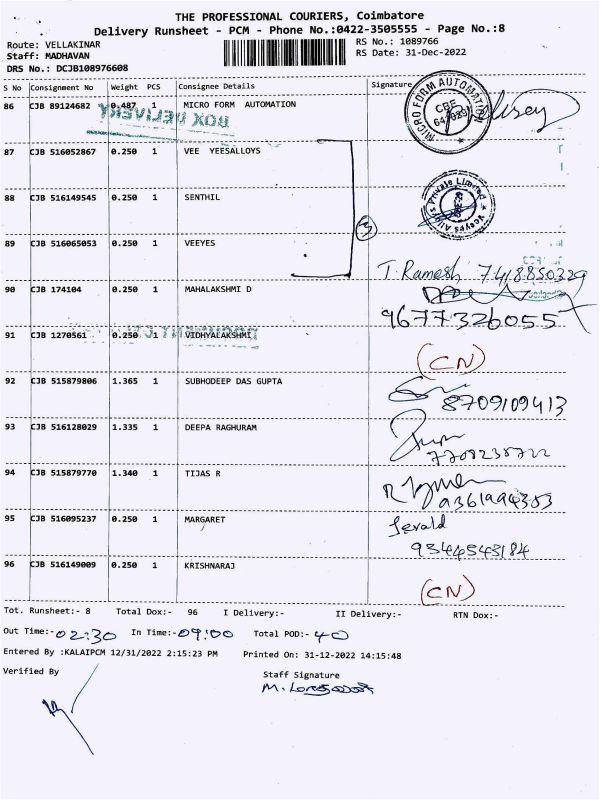 THE PROFESSIONAL COURIERS, Coimbatore
Delivery Runsheet - PCM - Phone No.:0422-3505555 - Page No.:8
Route: VELLAKINAR RS No.: 1089766
Staff: MADHAVAN RS Date: 31-Dec-2022
DRS No.: DCJB108976608
S No Consignment No Weight PCS Consignee Details Signature
86 CJB 89124682 0.487 1 MICRO FORM AUTOMATION
MICRO FORM AUTOMATION
CBE
BOX DELIVERY
87 CJB 516052867 0.250 1 VEE YEESALLOYS
88 CJB 516149545 0.250 1 SENTHIL
Veeyes Alloys Private Limited
89 CJB 516065053 0.250 1 VEEYES
3
T. Ramesh 7418850329
90 CJB 174104 0.250 1 MAHALAKSHMI D
9677326055
91 CJB 1270561 0.250 1 VIDHYALAKSHMI
(CN)
92 CJB 515879806 1.365 1 SUBHODEEP DAS GUPTA
8709109413
93 CJB 516128029 1.335 1 DEEPA RAGHURAM
94 CJB 515879770 1.340 1 TIJAS R
95 CJB 516095237 0.250 1 MARGARET Jerald
9344543184
96 CJB 516149009 0.250 1 KRISHNARAJ
(CN)
Tot. Runsheet:- 8 Total Dox:- 96 I Delivery:- II Delivery:- RTN Dox:-
Out Time:- 02:30 In Time:- 09:00 Total POD:- 40
Entered By :KALAIPCM 12/31/2022 2:15:23 PM Printed On: 31-12-2022 14:15:48
Verified By Staff Signature